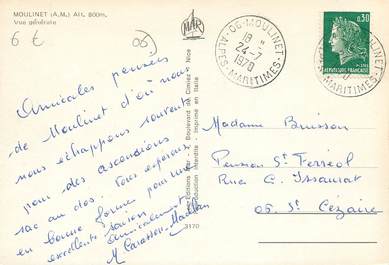 MOULINET (A.M.) Alt. 800m.
Vue générale
6 €
06
MAR
06-MOULINET
18 H
24-7
1970
ALPES MARITIMES
0,30
REPUBLIQUE FRANÇAISE
POSTES
Amicales pensées
de Moulinet d'où nous
nous échappons souvent
pour des ascensions
sac au dos. Vous espérons
en bonne forme pour une
excellente saison
amicalement
Editions Mar Boulevard de Cimiez Nice
Reproduction Interdite Imprimé en Italie
3170
Madame Buisson
Pension St Ferréol
Rue G. Issaurat
06. St Cézaire